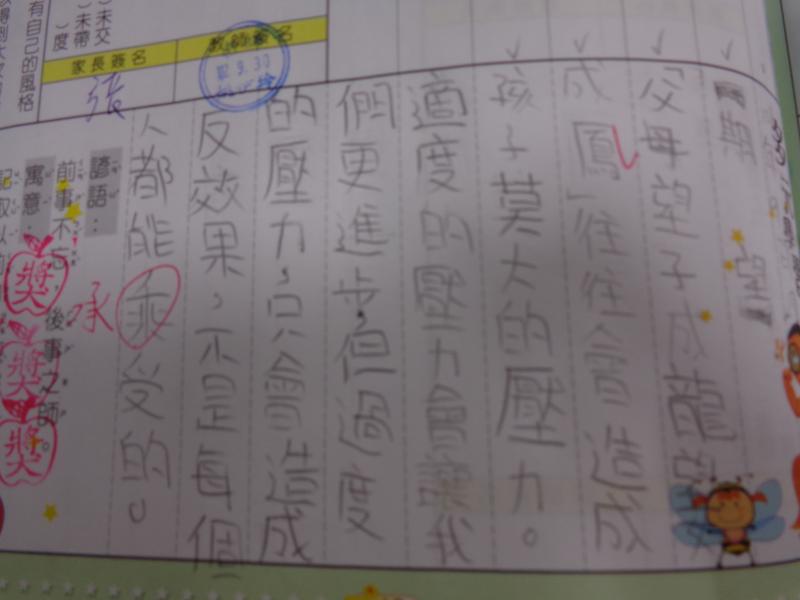 期望
「父母望子成龍望女
成鳳」往往會造成
孩子莫大的壓力。
適度的壓力會讓我
們更進步,但過度
的壓力,只會造成
反效果,不是每個
人都能乘受的。
承
諺語:
前事不忘 後事之師。
寓意:
記取以前
獎
獎
獎
教師簽名
9.30
家長簽名
張
未交
未帶
度
有自己的風格